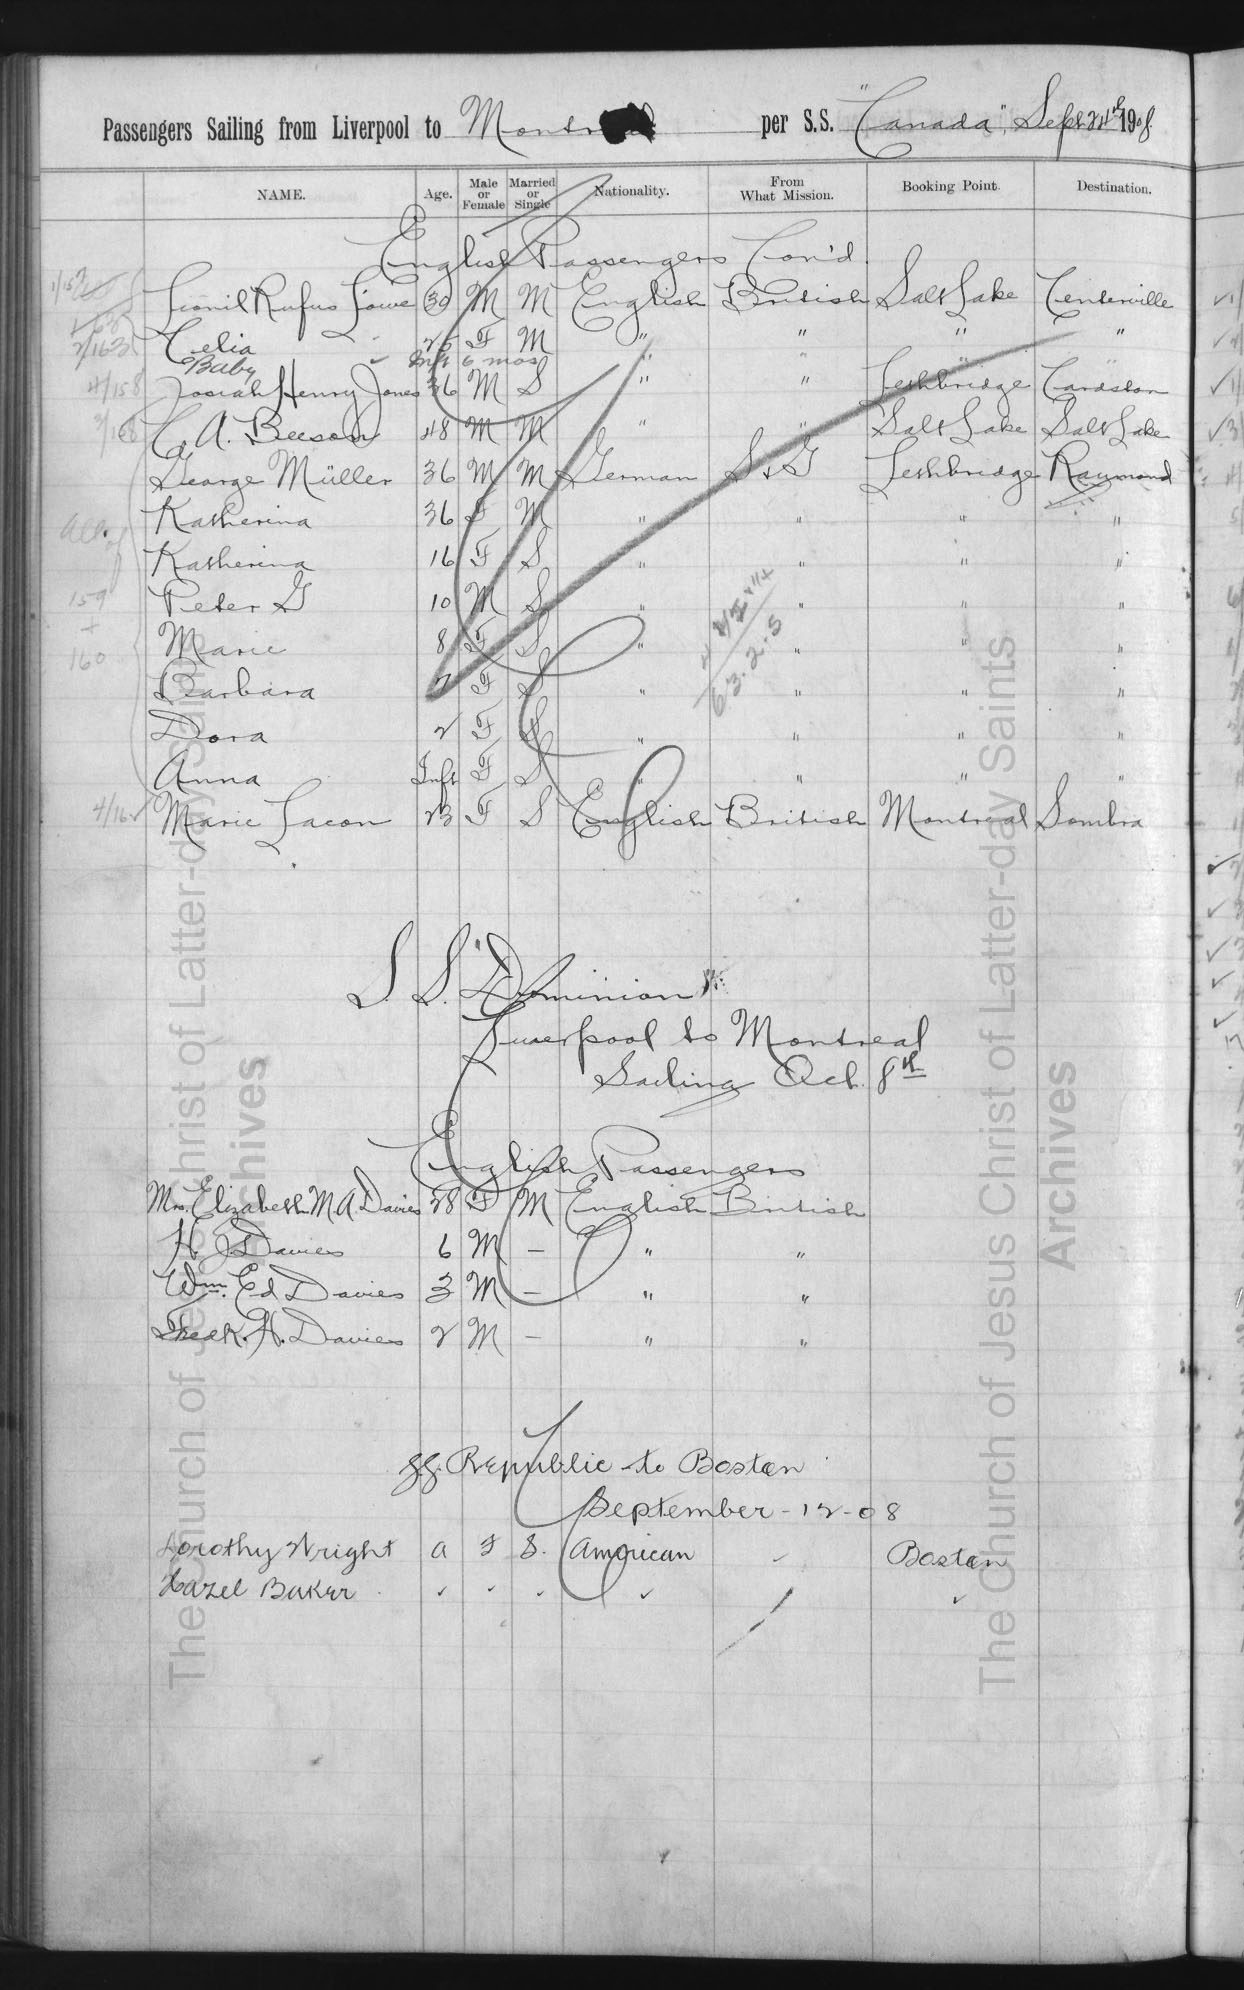 Passengers Sailing from Liverpool to Montreal per S.S. "Canada", Sept 24th 1908.
NAME. Age. Male or Female Married or Single Nationality. From What Mission. Booking Point. Destination.
English Passengers Con'd
1/152 Lionil Rufus Lowe 30 M M English British Salt Lake Centerville
2/163 Celia 25 F M " " " "
Baby Inft 6 mos " " "
4/158 Josiah Henry Jones 36 M S " " Lethbridge Cardston
3/168 C. A. Beeson 48 M M " " Salt Lake Salt Lake
George Müller 36 M M German S & G Lethbridge Raymond
Katherina 36 F M " " " "
Katherina 16 F S " " " "
Peter G 10 M S " " " "
159
+
160
Marie 8 F S " " " "
Barbara 7 F S " " " "
Dora 2 F S " " " "
Anna Inft F S " " " "
63.2.5
Marie Lacon 23 F S English British Montreal Sombra
S. S. "Dominion"
Liverpool to Montreal
Sailing Oct. 8th
English Passengers
Mrs. Elizabeth M A Davies 28 F M English British
H. J Davies 6 M — " "
Wm. Ed Davies 3 M — " "
Fredk. H. Davies 2 M — " "
SS. Republic to Boston
September - 12 - 08
Dorothy Wright a F S. American ✓ Boston
Hazel Baker ✓ ✓ ✓ ✓ ✓
The Church of Jesus Christ of Latter-day Saints
Archives
The Church of Jesus Christ of Latter-day Saints
Archives